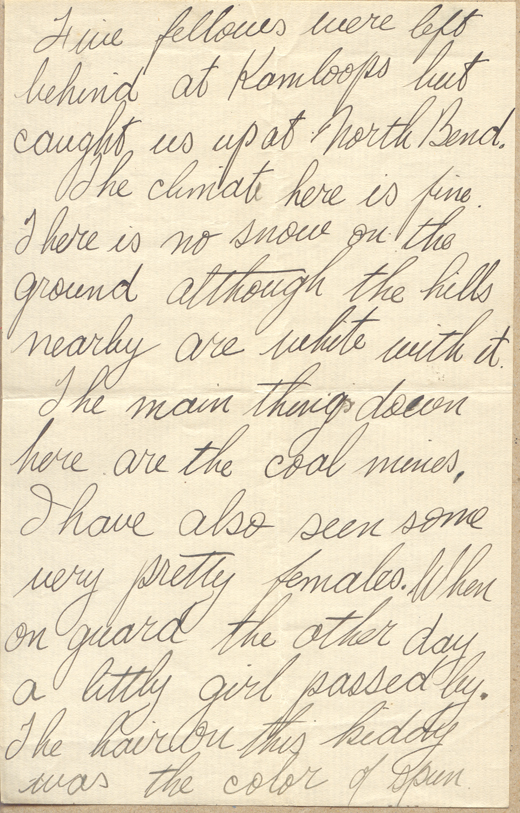 Five fellows were left
behind at Kamloops but
caught us up at North Bend.
The climate here is fine.
There is no snow on the
ground although the hills
nearby are white with it.
The main things down
here are the coal mines.
I have also seen some
very pretty females. When
on guard the other day
a littly girl passed by.
The hair on this kiddy
was the color of spun